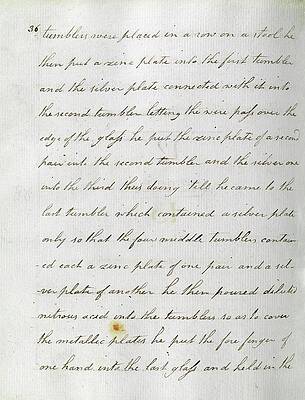 36 tumblers were placed in a row on a stool he
then put a zinc plate into the first tumbler
and the silver plate connected with it into
the second tumbler letting the wire pass over the
edge of the glass he put the zinc plate of a second
pair into the second tumbler and the silver one
into the third thus doing till he came to the
last tumbler which contained a silver plate
only so that the four middle tumblers contain-
ed each a zinc plate of one pair and a sil-
ver plate of another he then poured diluted
nitrous acid into the tumblers so as to cover
the metallic plates he put the fore finger of
one hand into the last glass and held in the